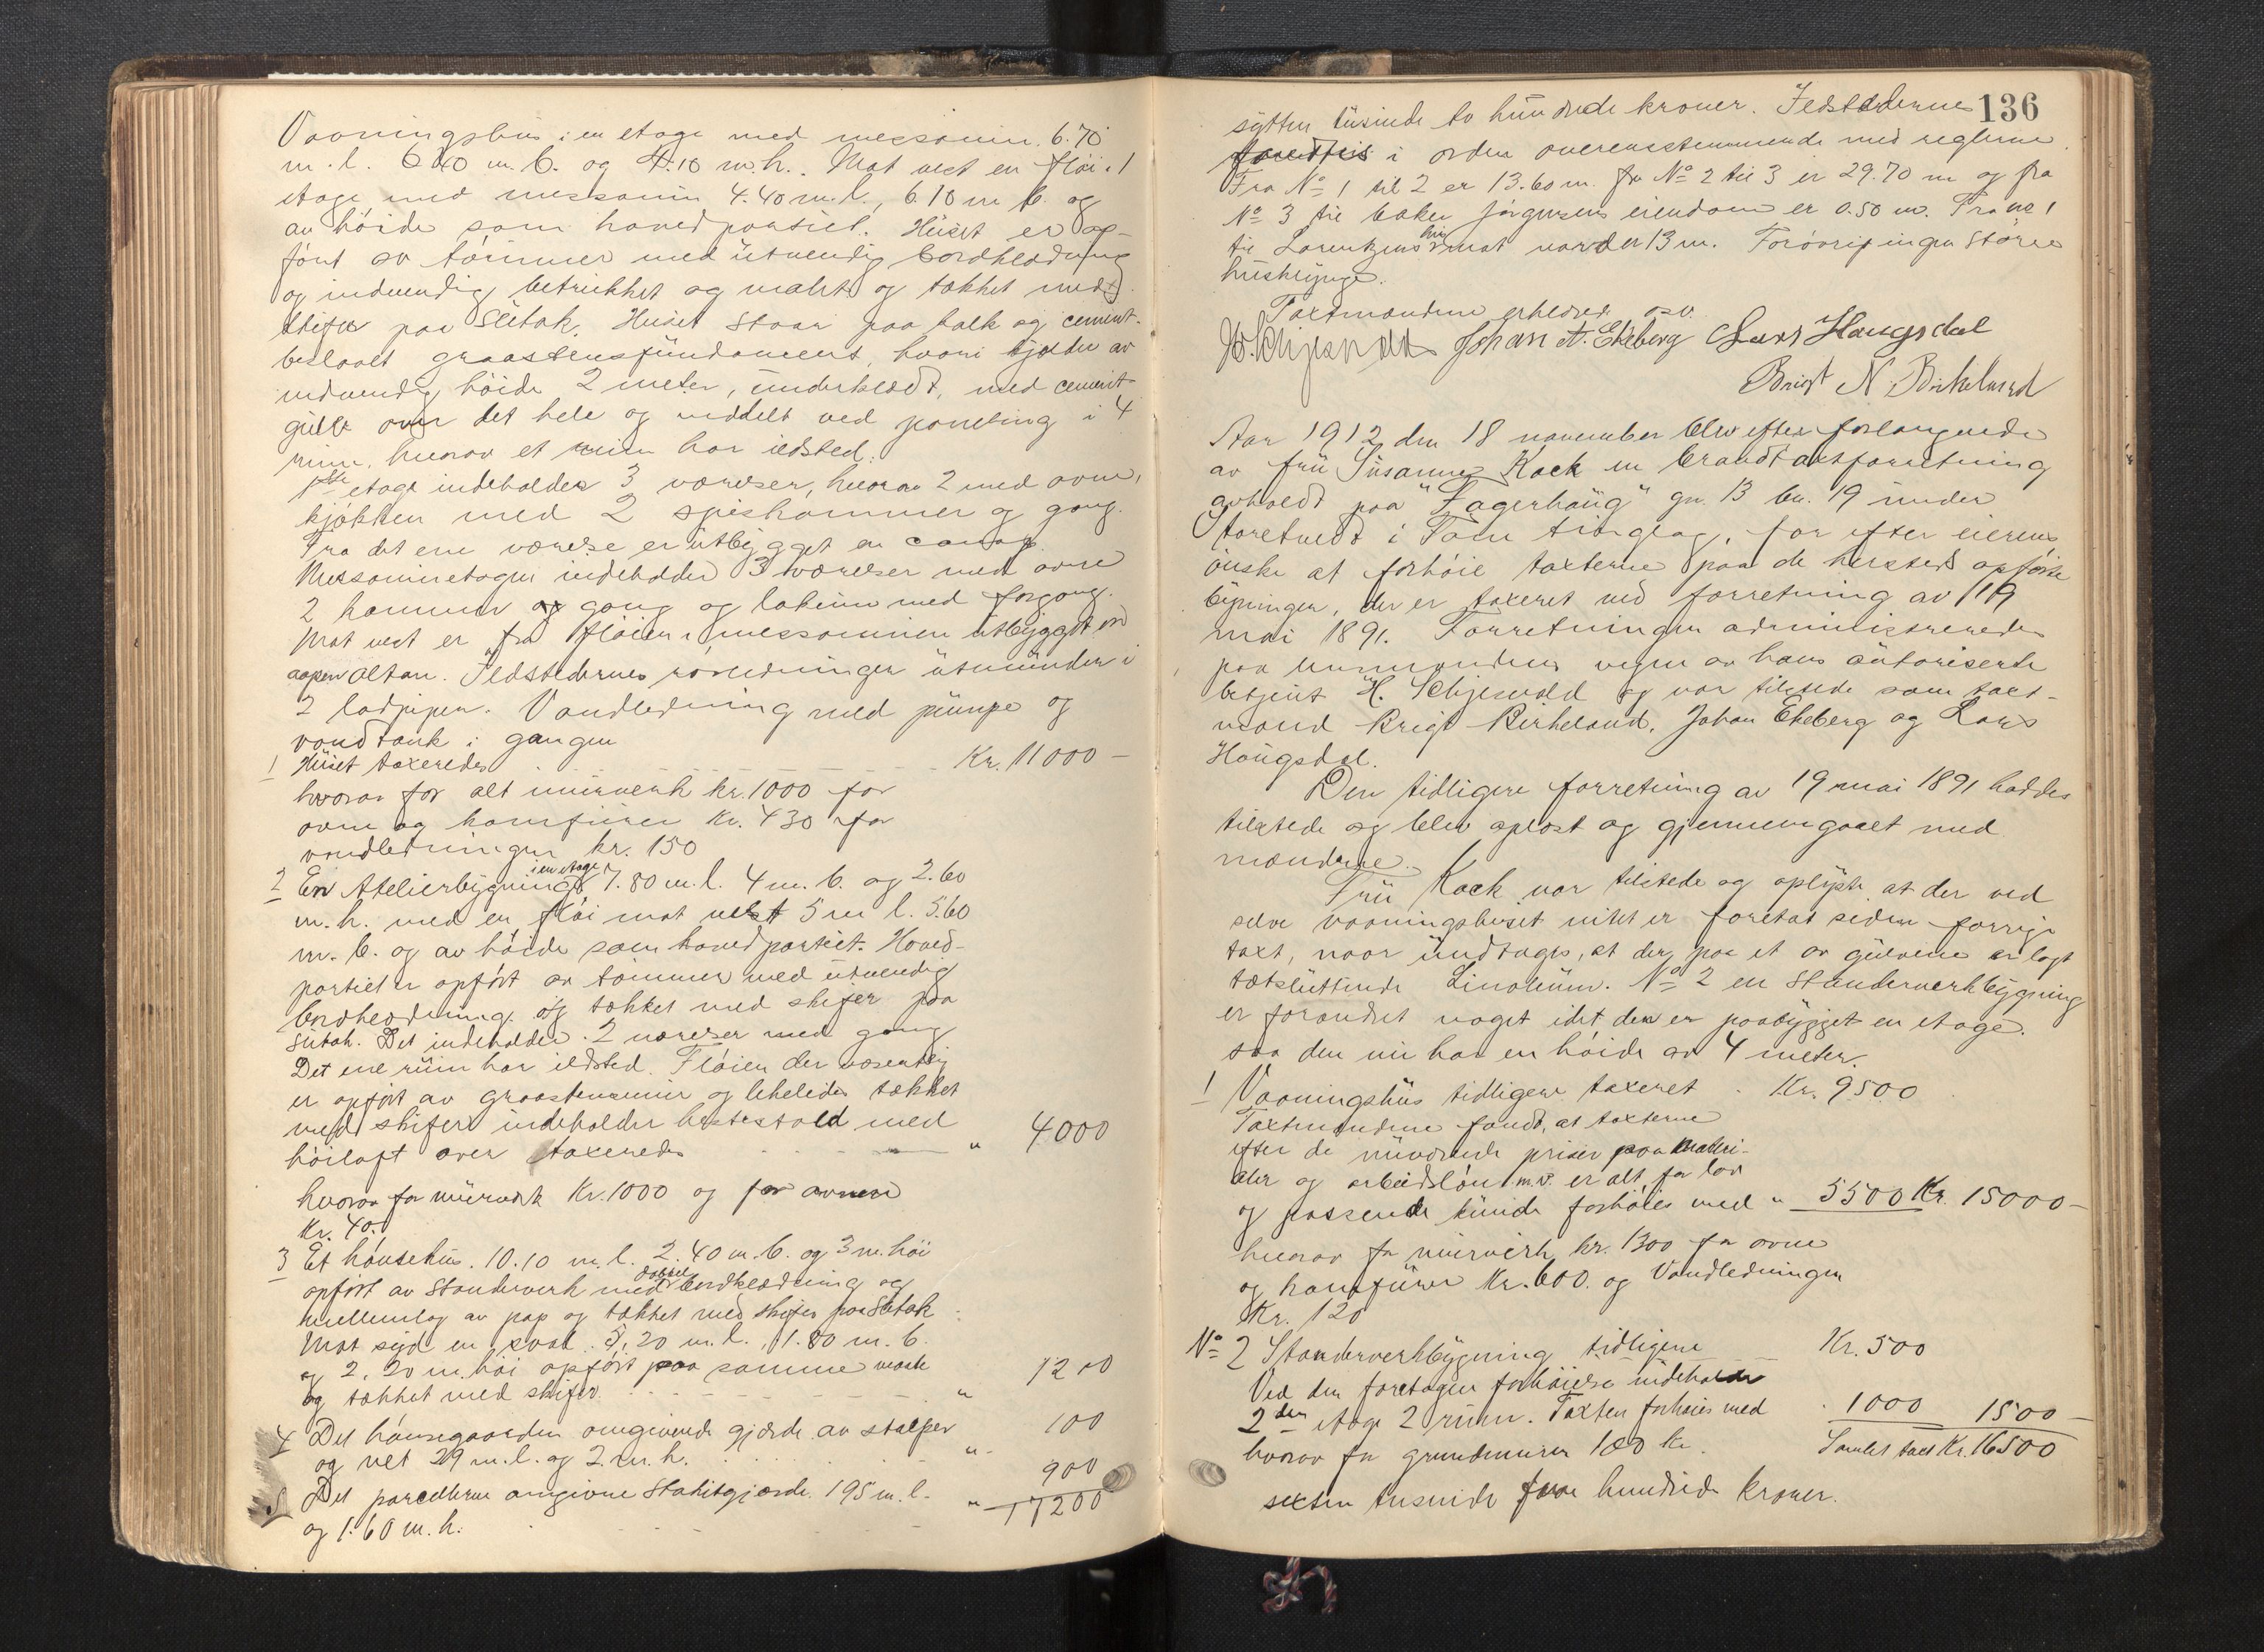 Vaaningshus i en etage med messanin 6.70
m. l. 6.40 m. b. og 4.10 m. h. Mot vest en fløi i 1
etage med messanin 4.40 m. l., 6.10 m b. og
av høide som hovedpartiet. Huset er op-
ført av tømmer med utvendig bordklædning
og indvendig betrukket og malet og tækket med
skifer paa sutak. Huset staar paa kalk og cement-
beslaaet graastensfundament, hvori kjælder av
indvendig høide 2 meter, underklædt, med cement-
gulv over det hele og inddelt ved paneling i 4
rum, hvorav et rum har ildsted.
1ste etage indeholder 3 værelser, hvorav 2 med ovne,
kjøkken med 2 spiskammer og gang.
Fra det ene værelse er utbygget en carnap.
Messaninetagen indeholder 3 værelser med ovne
2 kammer og gang og lokum med forgang.
Mot vest er fra fløien i messaninen utbygget en
aapen altan. Ildstedernes rørledninger utmunder i
2 ladpiper. Vandledning med pumpe og
vandtank i gangen
1 Huset taxeredes Kr. 11000 —
hvorav for alt murverk kr. 1000 for
ovne og komfurer Kr. 430 for
vandledningen kr. 150
2 En Atelierbygning i en etage 7.80 m. l. 4 m. b. og 2.60
m. h. med en fløi mot vest 5 m l. 5.60
m. b. og av høide som hovedpartiet. Hoved-
partiet er opført av tømmer med utvendig
bordklædning og tækket med skifer paa
sutak. Det indeholder 2 værelser med gang
Det ene rum har ildsted. Fløien der væsentlig
er opført av graastensmur og tækket
med skifer indeholder hestestald med
høiloft over taxeredes " 4000
hvorav for murverk Kr. 1000 og for ovnene
Kr. 40.
3 Et hønsehus. 10.10 m. l. 2.40 m. b. og 3 m. høi
opført av standerverk med dobbel bordklædning og
mellemlag av pap og tækket med skifer paa sutak
Mot syd en sval 5.20 m. l., 1.80 m. b.
og 2.20 m. høi opført paa samme maate
og tækket med skifer " 1200
4 Det hønsegaarden omgivende gjærde av stolper
og net 29 m. l. og 2 m. h. " 100
5 Det parcellerne omgivne Stakitgjærde 195 m. l.
og 1.60 m. h. " 900
17200
136
sytten tusinde to hundrede kroner. Ildstederne
i orden overensstemmende med reglerne.
Fra No 1 til 2 er 13.60 m. fra No 2 til 3 er 29.70 m og fra
No 3 til baker Jørgensens eiendom er 0.50 m. Fra no 1
til Lorentzens hus mot nord er 13 m. Forøvrig ingen større
husklynge.
Taxtmændene erklæred osv.
H. Schjesvold Johan A. Ekeberg Lars Haugsdal
Brigt N. Birkeland
Aar 1912 den 18 november blev efter forlangende
av fru Susanne Kock en brandtaxtforretning
avholdt paa "Fagerhaug" gn. 13 bn. 19 under
Storetvedt i Fane tinglag, for efter eierens
ønske at forhøie taxterne paa de hersteds opførte
bygninger, der er taxeret ved forretning av 19
mai 1891. Forretningen administreredes
paa lensmandens vegne av hans autoriserte
betjent H. Schjesvold og var tilstede som taxt-
mænd Brigt Birkeland, Johan Ekeberg og Lars
Haugsdal.
Den tidligere forretning av 19 mai 1891 haddes
tilstede og blev oplæst og gjennemgaaet med
mændene.
Fru Kock var tilstede og oplyste at der ved
selve vaaningshuset intet er foretat siden forrige
taxt, naar undtages, at der paa et av gulvene er lagt
tætsluttende Linoleum. No 2 en Standerverkbygning
er forandret noget idet den er paabygget en etage.
saa den nu har en høide av 4 meter.
1 Vaaningshus tidligere taxeret Kr. 9500
Taxtmændene fandt, at taxterne
efter de nuværende priser paa materi-
aler og arbeidsløn m.v. er alt for lav
og passende kunde forhøies med " 5500 Kr. 15000 —
hvorav for murverk kr. 1300 for ovne
og komfurer Kr. 600. og Vandledningen
Kr. 120
No 2 Standerverkbygning tidligere Kr. 500
Ved den foretagen forhøielse indeholder
2den etage 2 rum. Taxten forhøies med 1000 1500 —
hvorav for grundmuren 100 kr. Samlet taxt Kr. 16500
sexten tusinde fem hundrede kroner.